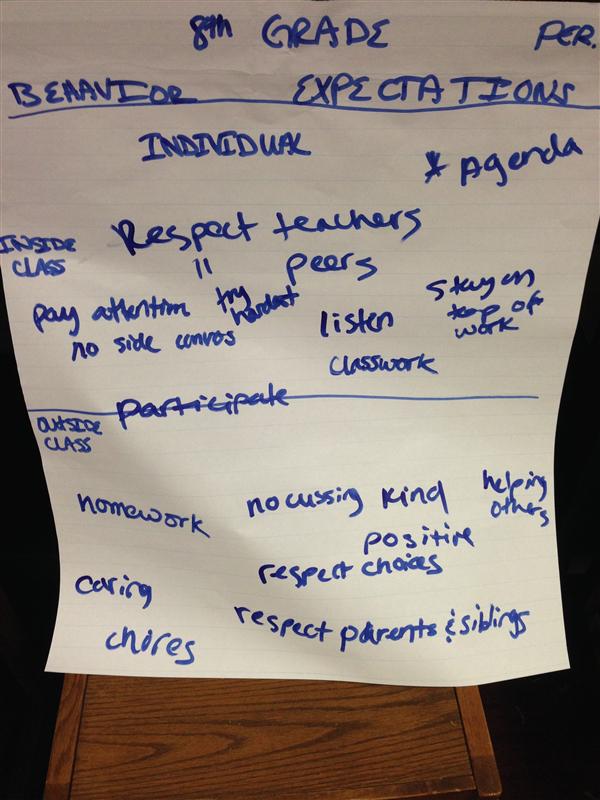 8th GRADE PER.
BEHAVIOR EXPECTATIONS
INDIVIDUAL
* Agenda
INSIDE
CLASS
Respect teachers
" peers
pay attention
no side convos
try
hardest
listen
classwork
stay on
top of
work
participate
OUTSIDE
CLASS
homework
no cussing
kind
helping
others
positive
respect choices
caring
respect parents & siblings
chores